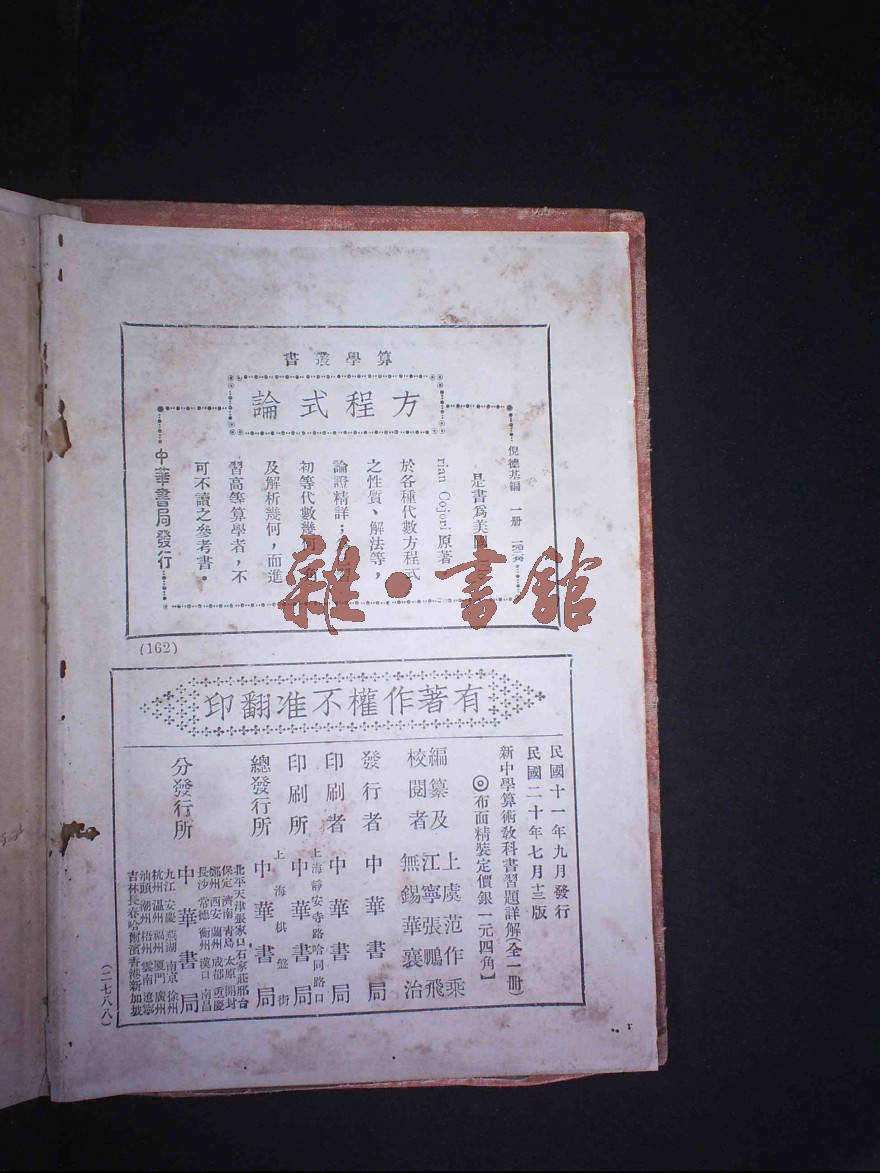 算學叢書
方程式論
倪德基編 一册
是書爲美國
rian Cojori 原著
於各種代數方程式
之性質、解法等，
論證精詳；
初等代數幾何
及解析幾何，而進
習高等算學者，不
可不讀之參考書。
中華書局發行
雜·書舘
(162)
有著作權不准翻印
民國十一年九月發行
民國二十年七月十三版
新中學算術教科書習題詳解(全一册)
◎布面精裝定價銀一元四角】
編纂及校閱者
上虞范作乘
江寧張鵬飛
無錫華襄治
發行者 中華書局
印刷者 中華書局
上海靜安寺路哈同路口
印刷所 中華書局
上海棋盤街
總發行所 中華書局
分發行所 中華書局
北平 天津 張家口 石家莊 邢台
保定 濟南 青島 太原 開封
鄭州 西安 蘭州 成都 重慶
長沙 常德 衡州 漢口 南昌
九江 安慶 蕪湖 南京 徐州
杭州 温州 福州 厦門 廣州
汕頭 潮州 梧州 雲南 遼寧
吉林 長春 哈爾濱 香港 新加坡
(二七八八)